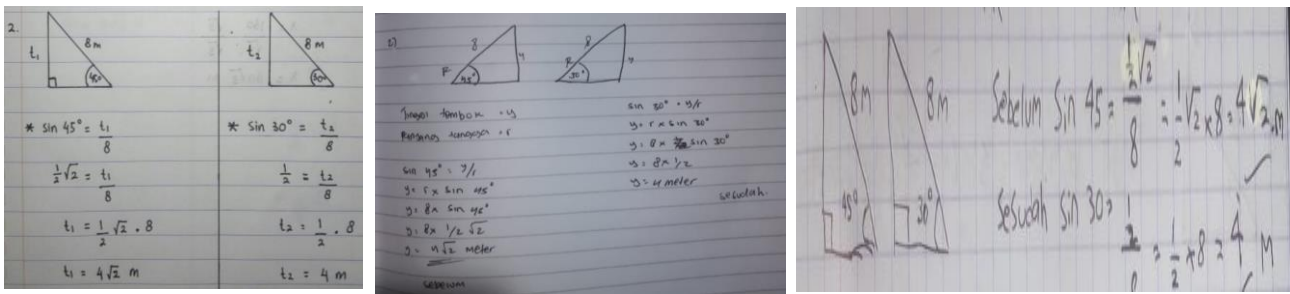 2.
t₁ 8 m 45°
t₂ 8 m 30°
* sin 45° = t₁/8
1/2 √2 = t₁/8
t₁ = 1/2 √2 . 8
t₁ = 4√2 m
* sin 30° = t₂/8
1/2 = t₂/8
t₂ = 1/2 . 8
t₂ = 4 m
8 y 45°
8 30°
Tinggi tembok = y
tangga = r
sin 45° = y/r
y = r x sin 45°
y = 8 x sin 45°
y = 8 x 1/2 √2
y = 4√2 meter
sebelum
sin 30° = y/r
y = r x sin 30°
y = 8 x sin 30°
y = 8 x 1/2
y = 4 meter
sesudah
8 m 45°
8 m 30°
Sebelum Sin 45 = 1/2 √2 / 8 = 1/2 √2 x 8 = 4√2 . m
Sesudah Sin 30 = 1/2 = 1/2 x 8 = 4 M